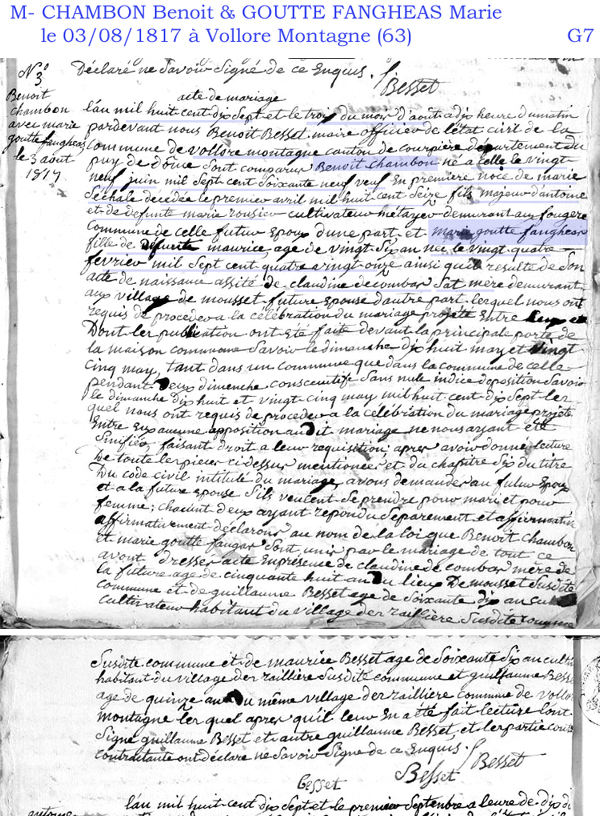 M- CHAMBON Benoit & GOUTTE FANGHEAS Marie
le 03/08/1817 à Vollore Montagne (63)
G7
N° 3
Déclaré ne Savoir Signé de ce Enquis. Besset
Benoit
chambon
avec marie
goutte fangheas
le 3 août
1817
acte de mariage
lân mil huit cent dix Sept et le trois du mois d'aout a dix heure du matin
pardevant nous Benoît Besset, maire officier de létat civil de la
commune de vollore montagne canton de courpière departement du
puy de dôme Sont comparus Benoit Chambon né a celle le vingt
neuf juin mil Sept cent Soixante neuf veuf en premiere noce de marie
decedée le premier avril mil huit cent Seize fils majeur d'antoine
et de defunte marie cultivateur métayer demeurant aux fougere
commune de celle futur Epoux d'une part et marie goutte fangheas
fille de defunt maurice age de vingt Six an née le vingt quatre
fevrier mil Sept cent quatre vingt onze ainsi quil resulte de Son
acte de naissance de claudine decombas Sat mere demeurant
aux village de mousset future Epouse d'autre part lesquel nous ont
requis de proceder a la célébration du mariage projeté Entre
Dont les publication ont été faite devant la principale porte de
la maison commune Savoir le dimanche dix huit may et vingt
cinq may, tant dans un commune que dans la commune de celle
pendant Deux dimanche consecutife Sans nule deposition Savoir
le dimanche dix huit et vingt cinq may mil huit cent dix Sept les
quel nous ont requis de proceder a la célébration du mariage projeté
Entre Eux aucune apposition audit mariage ne nous ayant été
Sinifiés, faisant droit a leur requisition, apres avoir donné lecture
De toute les pieces cidessus mentionee et du chapitre Six du titre
Du code civil intitulé du mariage, avons demander au futur Epoux
et a la future Epouse S'ils veulent Se prendre pour mari et pour
femme; chacun deux ayant repondu Séparement et affirmatin
affirmativement déclarons au nom de la loi que Benoit Chambon
et marie goutte fangas Sont unis par le mariage de tout ce
avons dresser acte En presence de claudine decombas mère de
la future age de cinquante huit an Du lieux De mousset Susdite
commune et de guillaume Besset age de Soixante dix an
cultivateur habitant du village des raillière Susdite commune
Susdite commune et de maurice Besset age de Soixante Six an cultiv
habitant du village des raillière Susdite commune et guillaume Besset
age de quinze an Du même village des raillière commune de vollo
montagne les quel apres quil leur En a été fait lecture Sont
Signe guillaume Besset et autre guillaume Besset, et les partie
contractante ont déclaré ne Savoir Signé de ce Enquis. Besset
Besset
Besset
lân mil huit cent dix Sept et le premier Septembre a leure de dix